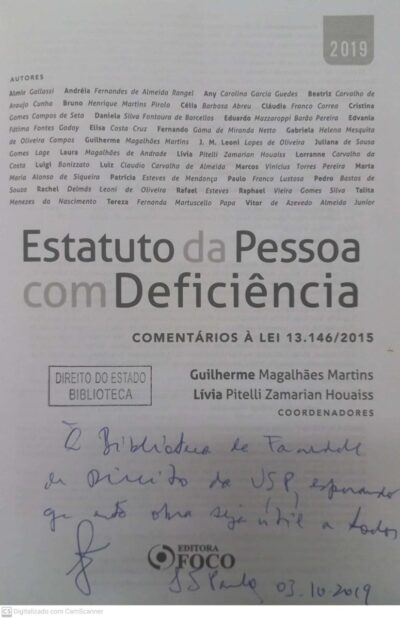 2019
AUTORES
Almir Gallassi Andréia Fernandes de Almeida Rangel Any Carolina Garcia Guedes Beatriz Carvalho de
Araujo Cunha Bruno Henrique Martins Pirolo Célia Barbosa Abreu Cláudia Franco Correa Cristina
Gomes Campos de Seta Daniela Silva Fontoura de Barcellos Eduardo Mazzaroppi Barão Pereira Edvania
Fátima Fontes Godoy Elisa Costa Cruz Fernando Gama de Miranda Netto Gabriela Helena Mesquita
de Oliveira Campos Guilherme Magalhães Martins J. M. Leoni Lopes de Oliveira Juliana de Sousa
Gomes Lage Laura Magalhães de Andrade Lívia Pitelli Zamarian Houaiss Lorranne Carvalho da
Costa Luigi Bonizzato Luiz Claudio Carvalho de Almeida Marcos Vinicius Torres Pereira Marta
Maria Alonso de Siqueira Patricia Esteves de Mendonça Paulo Franco Lustosa Pedro Bastos de
Souza Rachel Delmás Leoni de Oliveira Rafael Esteves Raphael Vieira Gomes Silva Talita
Menezes do Nascimento Tereza Fernanda Martuscello Papa Vitor de Azevedo Almeida Junior
Estatuto da Pessoa
com Deficiência
COMENTÁRIOS À LEI 13.146/2015
DIREITO DO ESTADO
BIBLIOTECA
Guilherme Magalhães Martins
Lívia Pitelli Zamarian Houaiss
COORDENADORES
À Biblioteca da Faculdade
de Direito da USP, esperando
que esta obra seja útil a todos
EDITORA
FOCO
S Paulo, 03.10.2019
CS Digitalizado com CamScanner